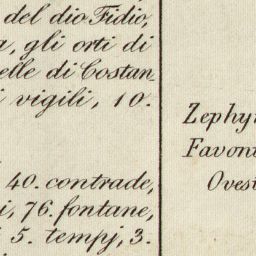 del dio Fidio,
gli orti di
elle di Costan
vigili, 10.
40. contrade,
i, 76. fontane,
5. tempj, 3.
Zephy
Favon
Ovest